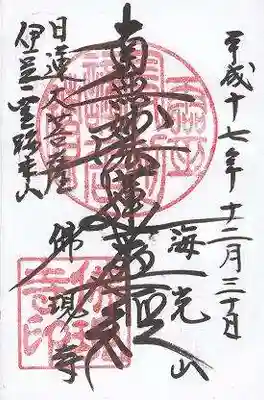 平成十七年十二月三十日
海光山
南無妙法蓮華経
佛現寺
日蓮大菩薩
伊豆霊跡本山